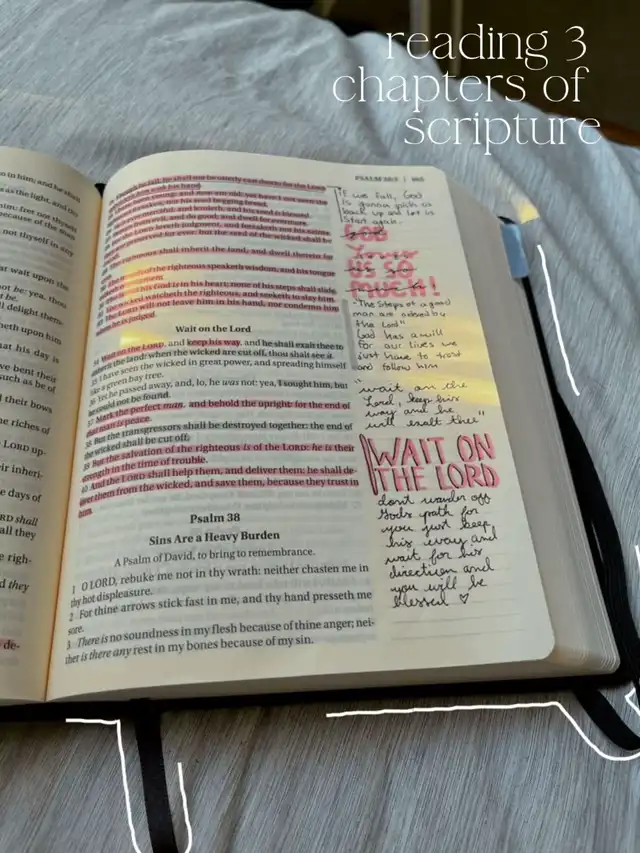 reading 3
chapters of
scripture
in him; and he shall
as the light, and
him: fret not thyself
because of the man
not thyself in any
wait upon the
not be: yea, thou
delight them-
upon him
that his day is
bent their
such as be of
their bows
riches of
LORD up-
inheri-
days of
LORD shall
all they
righ-
and they
de-
PSALM
he fall, he shall not be utterly cast down: for the LORD
with his hand.
have been young, and now am old; yet have I not seen the
forsaken, nor his seed begging bread.
merciful, and lendeth; and his seed is blessed.
from evil, and do good; and dwell for evermore.
LORD loveth judgment, and forsaketh not his saints;
preserved for ever: but the seed of the wicked shall be
righteous shall inherit the land, and dwell therein for
of the righteous speaketh wisdom, and his tongue
of his God is in his heart; none of his steps shall slide.
wicked watcheth the righteous, and seeketh to slay him.
LORD will not leave him in his hand, nor condemn him
he is judged.
Wait on the Lord
34 Wait on the LORD, and keep his way, and he shall exalt thee to
inherit the land: when the wicked are cut off, thou shalt see it.
35 I have seen the wicked in great power, and spreading himself
like a green bay tree.
36 Yet he passed away, and, lo, he was not: yea, I sought him, but
he could not be found.
37 Mark the perfect man, and behold the upright: for the end of
that man is peace.
38 But the transgressors shall be destroyed together: the end of
the wicked shall be cut off.
39 But the salvation of the righteous is of the LORD: he is their
strength in the time of trouble.
40 And the LORD shall help them, and deliver them: he shall de-
liver them from the wicked, and save them, because they trust in
him.
Psalm 38
Sins Are a Heavy Burden
A Psalm of David, to bring to remembrance.
1 O LORD, rebuke me not in thy wrath: neither chasten me in
thy hot displeasure.
2 For thine arrows stick fast in me, and thy hand presseth me
sore.
3 There is no soundness in my flesh because of thine anger; nei-
ther is there any rest in my bones because of my sin.
If we fall, God
is gonna pick us
back up and let us
start again.
GOD
loves
us so
much!
"The Steps of a good
man are ordered by
the Lord"
God has a will
for our lives we
just have to trust
and follow him
"wait on the
Lord, keep his
way and he
will exalt thee"
WAIT ON
THE LORD
don't wander off
Gods path for
you just keep
his way and
wait for his
direction and
you will be
blessed ♡